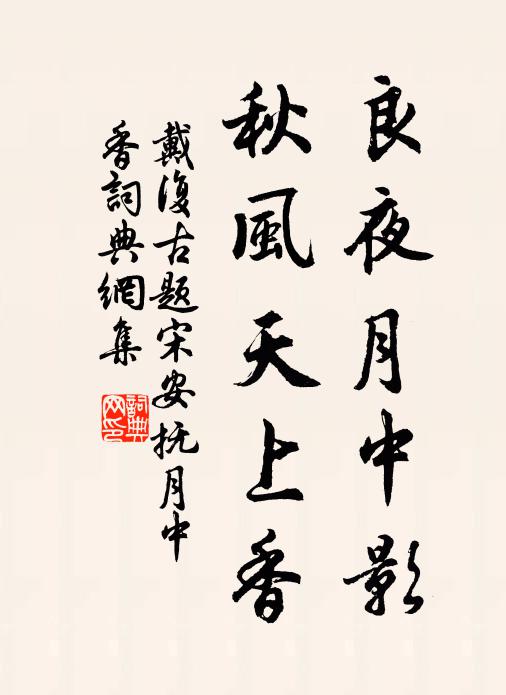 良夜月中影
秋風天上香
戴復古題宋安抚月中
香詞典網集
詞典网印